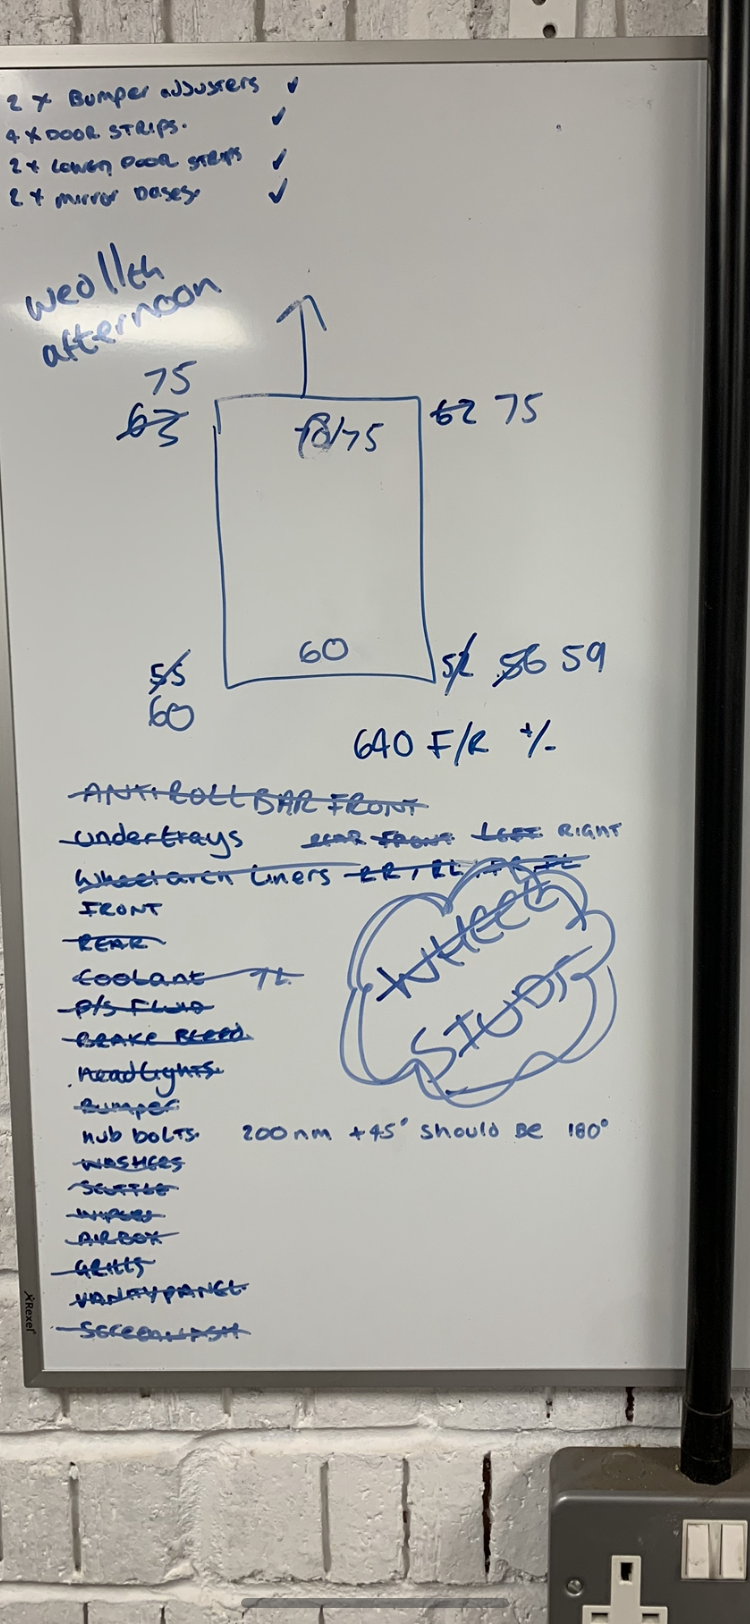 2 x Bumper adjusters ✓
4 x DOOR STRIPS. ✓
2 x LOWER DOOR STRIPS ✓
2 x mirror bases. ✓
wed 11th
afternoon
75
63
/75
62 75
60
55
60
52 56 59
640 F/R +/-
ANTI ROLL BAR FRONT
undertrays REAR FRONT LEFT RIGHT
Wheelarch Liners RR / RL, FR FL
FRONT
REAR
Coolant 7L
P/S FLUID
BRAKE BLEED
Headlights.
Bumper
WHEEL
STUDS
hub bolts. 200nm +45° should be 180°
WASHERS
SCUTTLE
WIPERS
AIRBOX
GRILLS
VANITY PANEL
SCREENWASH
Rexel